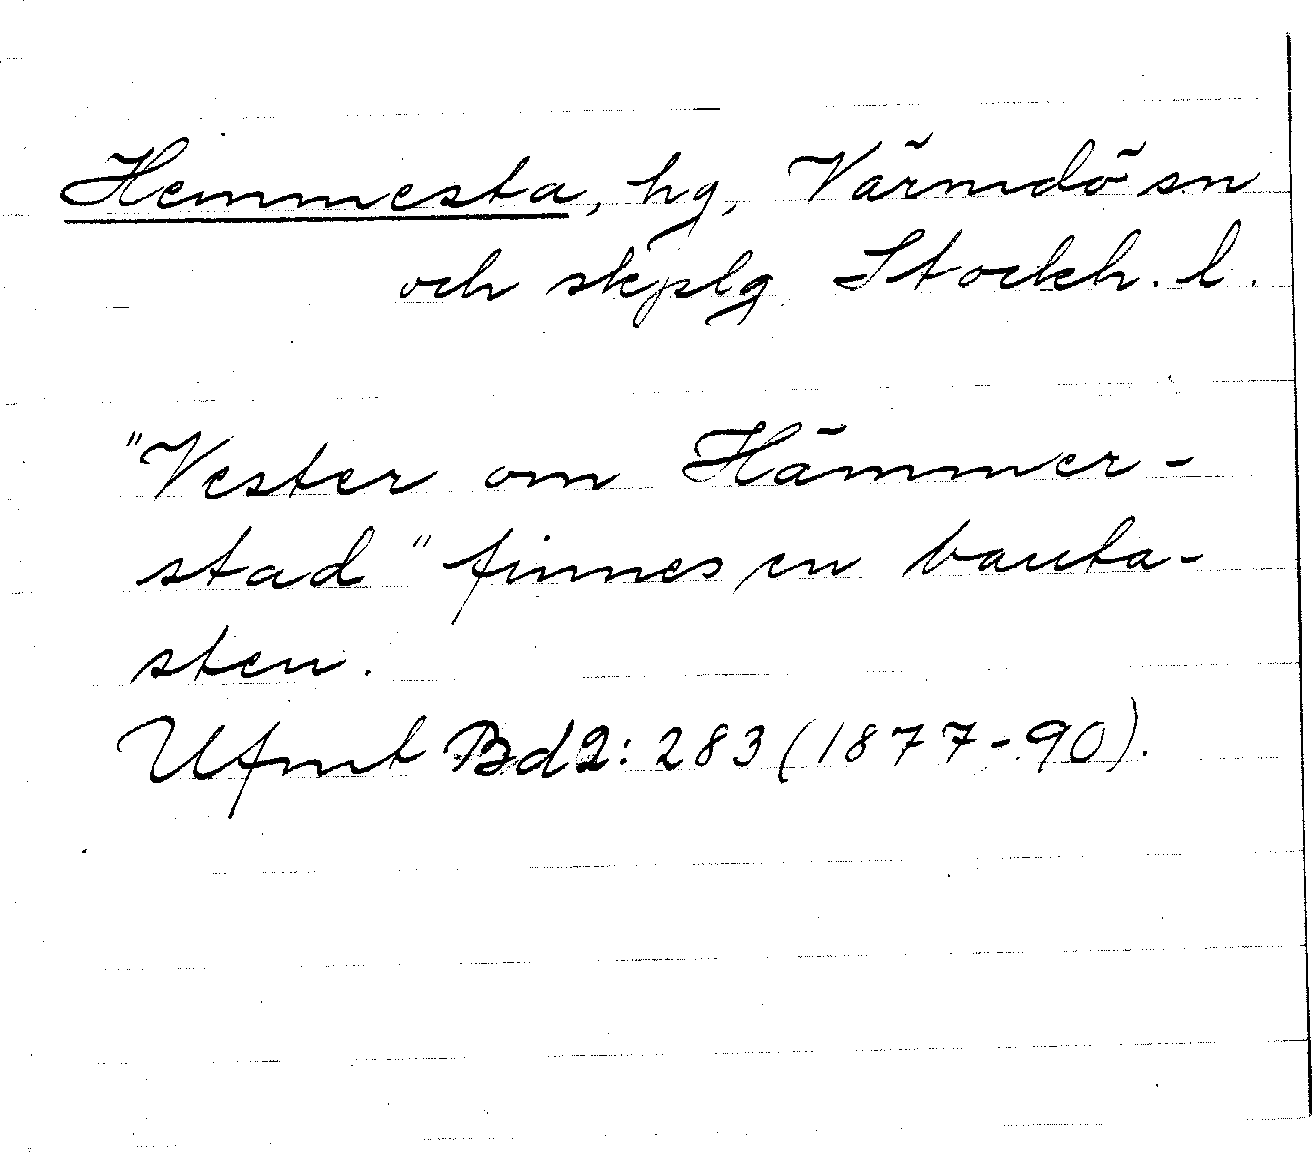 Hemmesta, hg, Värmdö sn
och skplg Stockh. l.
"Vester om Hämmer-
stad" finnes en bauta-
sten.
Ufmt Bd 2: 283 (1877-90).